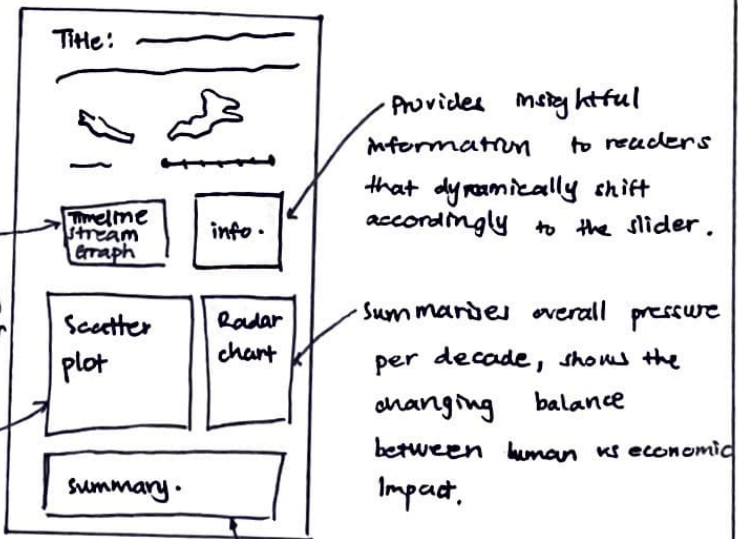 Title:
Timeline
stream
Graph
info.
Scatter
plot
Radar
chart
summary.
Provides insightful
information to readers
that dynamically shift
accordingly to the slider.
Summarises overall pressure
per decade, shows the
changing balance
between human vs economic
Impact.